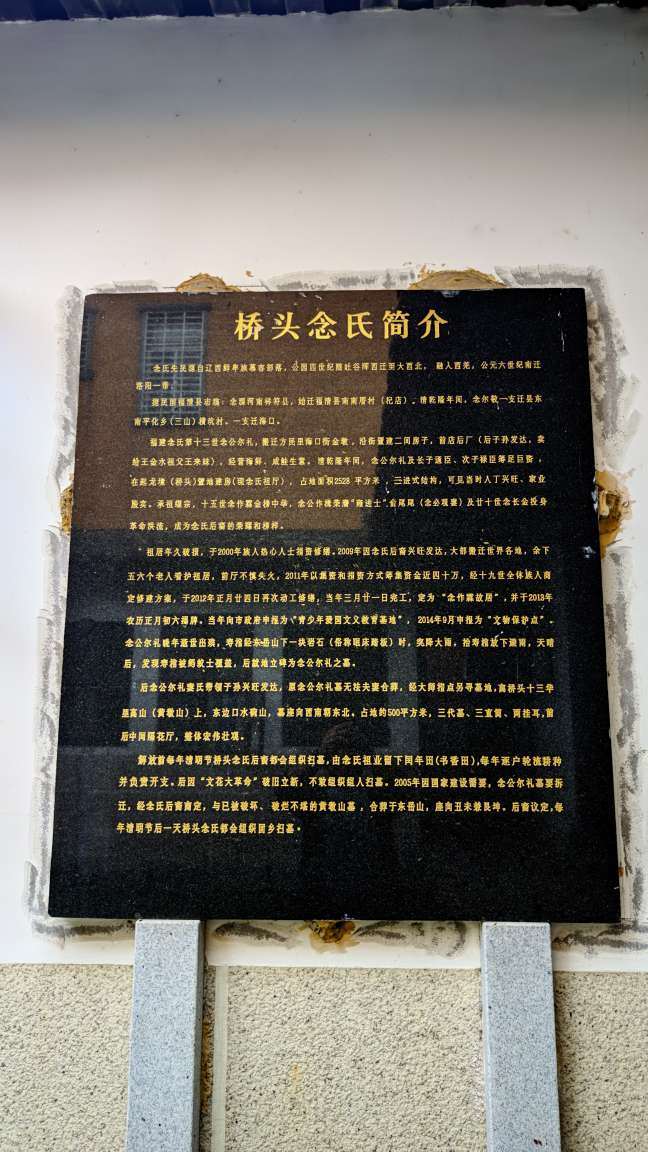 桥头念氏简介
念氏先民源自辽西鲜卑族慕容部落，公园四世纪随吐谷浑西迁至大西北， 融入西羌，公元六世纪南迁
洛阳一带。
据民国福清县志临：念源河南祥符县，始迁福清县南南厝村（杞店）。清乾隆年间，念尔敬一支迁县东
南平化乡(三山)横坑村。一支迁海口。
福建念氏第十三世念公尔礼，搬迁方民里海口街金墩，沿街置建二间房子，前店后厂（后子孙发达，卖
给王金水祖父王来妹），经营海鲜、咸鲑生意。清乾隆年间，念公尔礼及长子通臣、次子禄臣筹足巨资，
在起龙境（桥头)置地建房(现念氏祖厅），占地面积2528 平方米，三进式结构，可见当时人丁兴旺、家业
殷实。承祖继宗，十五世念作霖金榜中举，念公作揖荣膺“雍进士”俞尾尾（念必瑛妻）及廿十世念长金投身
革命洪流，成为念氏后裔的荣耀和榜样。
祖居年久破损，于2000年族人热心人士捐资修缮。2009年因念氏后裔兴旺发达，大部搬迁世界各地，余下
五六个老人看护祖居，前厅不慎失火，2011年以集资和捐资方式筹集资金近四十万，经十九世全体族人商
定修建方案，于2012年正月廿四日再次动工修缮，当年三月廿一日完工，定为“念作霖故居”，并于2013年
农历正月初六揭牌。当年向市政府申报为“青少年爱国文义教育基地”，2014年9月申报为“文物保护点”。
念公尔礼晚年逝世出殡，寿棺经东岳山下一块岩石（俗称眠床踏板）时，突降大雨，抬寿棺放下避雨，天晴
后，发现寿棺被蚂蚁土覆盖，后就地立碑为念公尔礼之墓。
后念公尔礼妻氏带领子孙兴旺发达，原念公尔礼墓无法夫妻合葬，经大师指点另寻墓地，离桥头十三华
里高山（黄墩山）上，东边口水碗山，墓座向西南朝东北。占地约500平方米，三代墓、三直筒、两挂耳，首
后中间隔花厅，整体宏伟壮观。
解放前每年清明节桥头念氏后裔都会组织扫墓，由念氏祖业留下同年田(书香田)，每年逐户轮流耕种
并负责开支。后因“文花大革命”破旧立新，不敢组织组人扫墓。2005年因国家建设需要，念公尔礼墓要拆
迁，经念氏后裔商定，与已被破坏、破烂不堪的黄墩山墓，合葬于东岳山，座向丑未兼艮坤。后裔议定，每
年清明节后一天桥头念氏都会组织回乡扫墓。